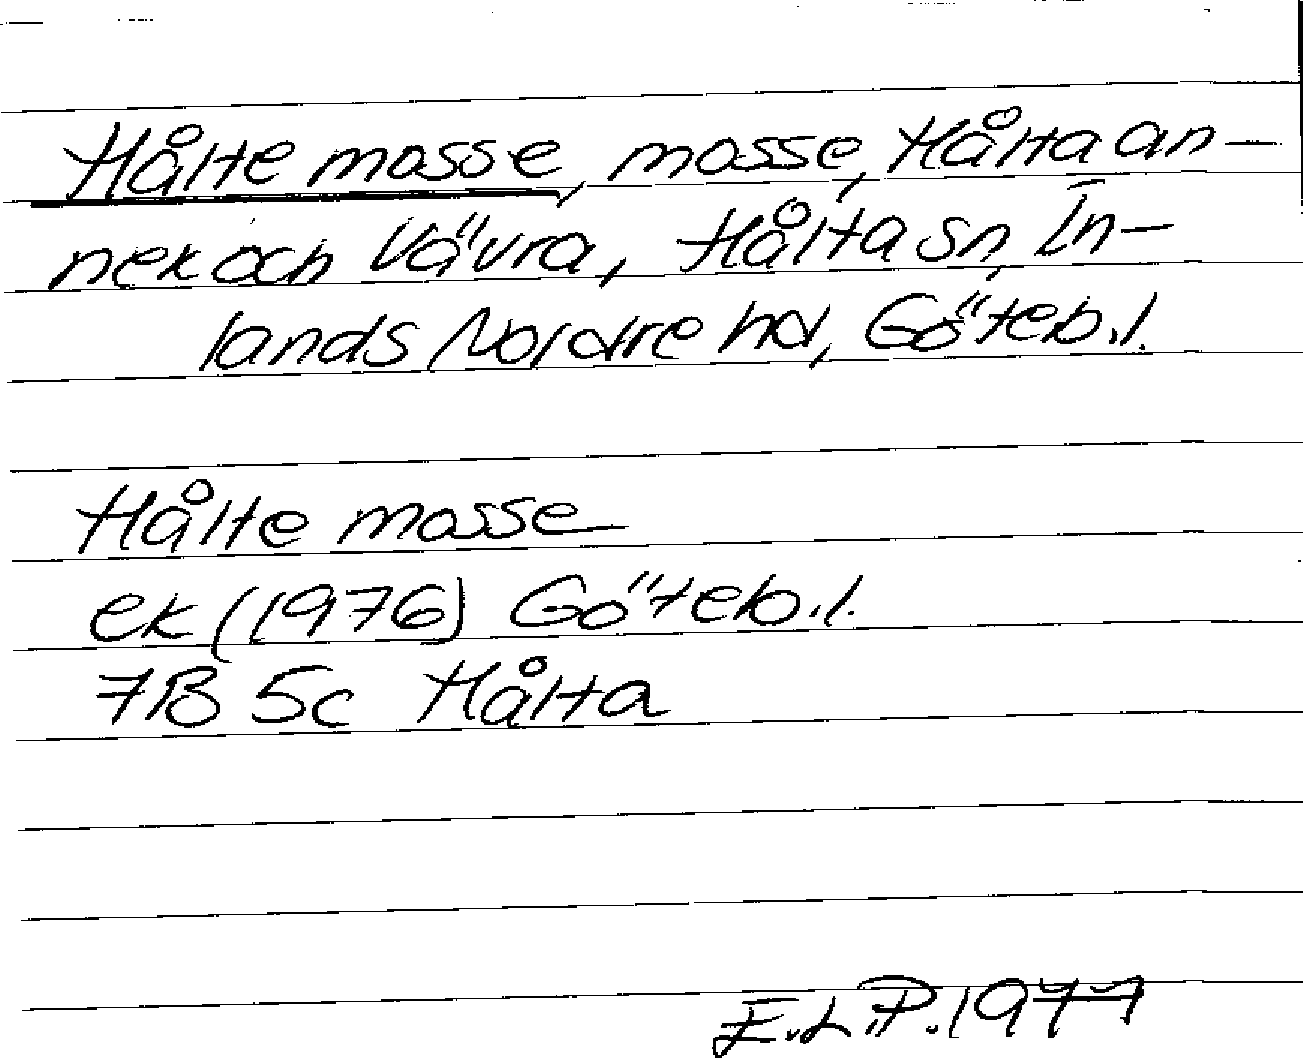 Hålte mosse, mosse, Hålta an-
nek och Vävra, Hålta sn, In-
lands Nordre hd, Göteb.l.
Hålte mosse
ek (1976) Göteb.l.
7B 5c Hålta
E.L.P. 1977